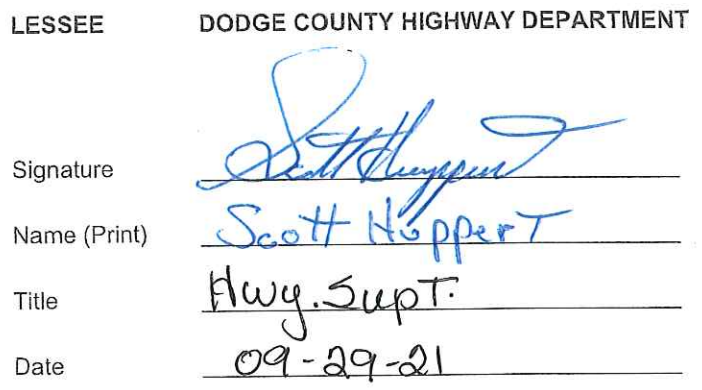 LESSEE DODGE COUNTY HIGHWAY DEPARTMENT
Signature Scott Huppert
Name (Print) Scott Huppert
Title Hwy. Supt.
Date 09-29-21